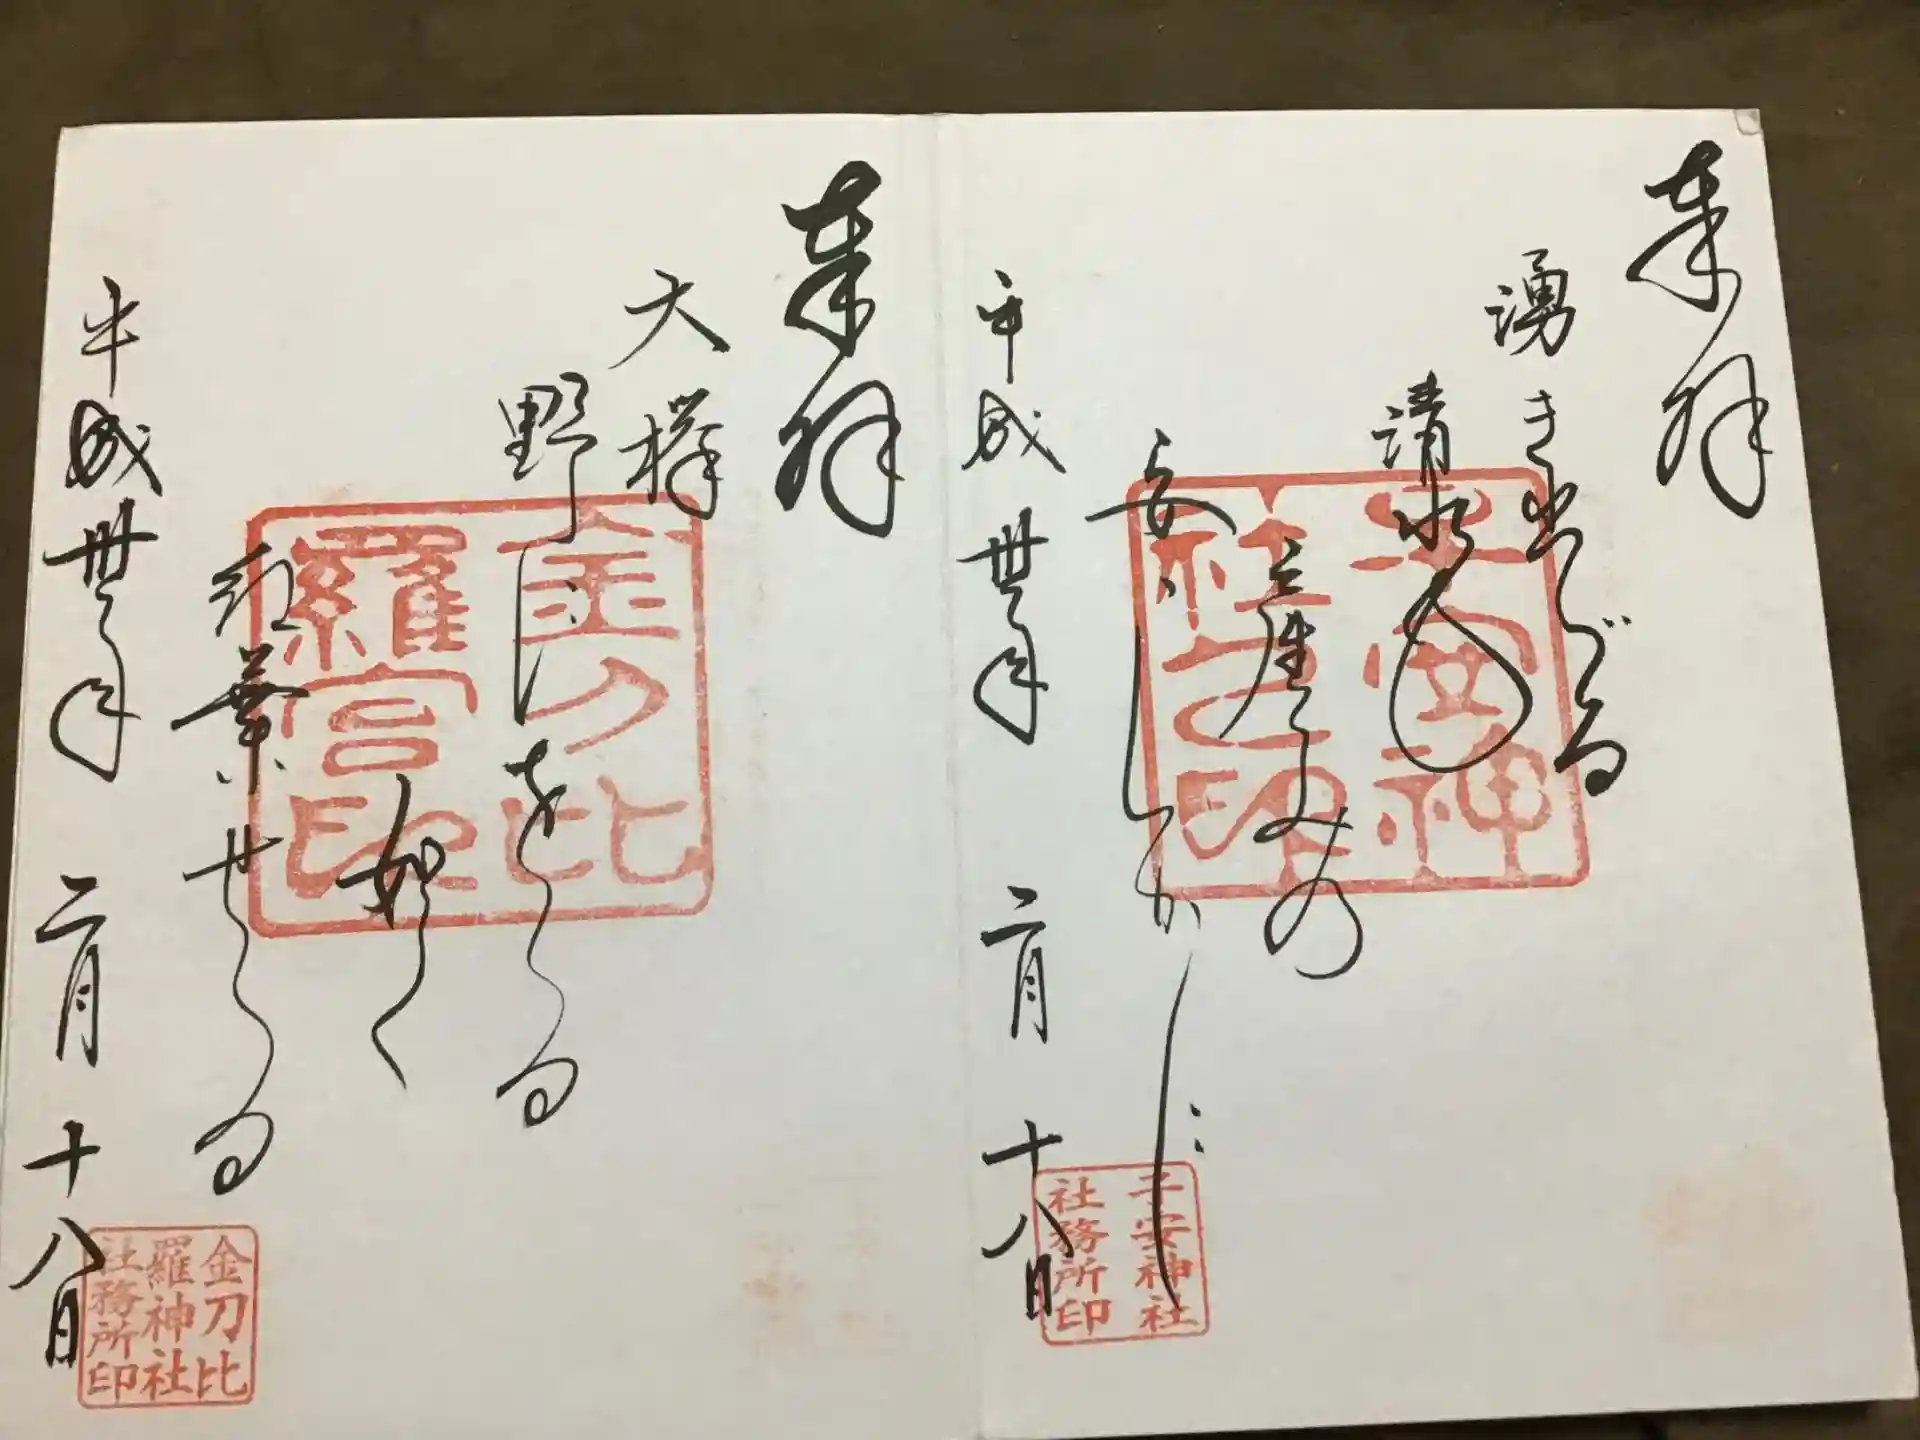 奉拝
湧き出づる
清水
産土の
子安神
社之印
平成丗年 二月十八日
子安神社
社務所印
奉拝
大欅
野
如く
紅葉せる
金刀比
羅宮印
平成丗年 二月十八日
金刀比
羅神社
社務所印